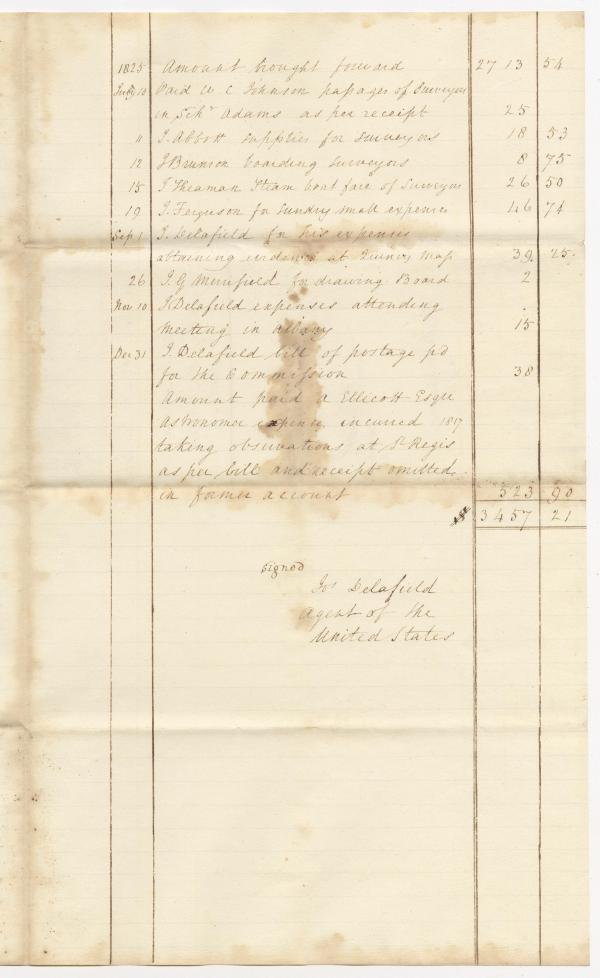 1825 Amount brought forward 27 13 54
July 10 Paid W C Johnson passages of Surveyors
in Schr Adams as per receipt 25
" J. Abbott supplies for Surveyors 18 53
12 J Brunson boarding Surveyors 8 75
15 J Theaman Steam boat fare of Surveyors 26 50
19 J. Ferguson for sundry small expences 46 74
Sep 1 J. Delafield for his expences
attaining evidence at Quincy map 39 25
26 J. G Merrifield for drawing Board 2
Nov 10 J Delafield expenses attending
Meeting in Albany 15
Dec 31 J. Delafield bill of postage pd
for the Commission 38
Amount paid a Ellicott Esqre
Astronomer expences incurred 1817
taking observations at St Regis
as per bill and receipt omitted
in former account 523 90
$ 3457 21
signed
Jos Delafield
Agent of the
United States